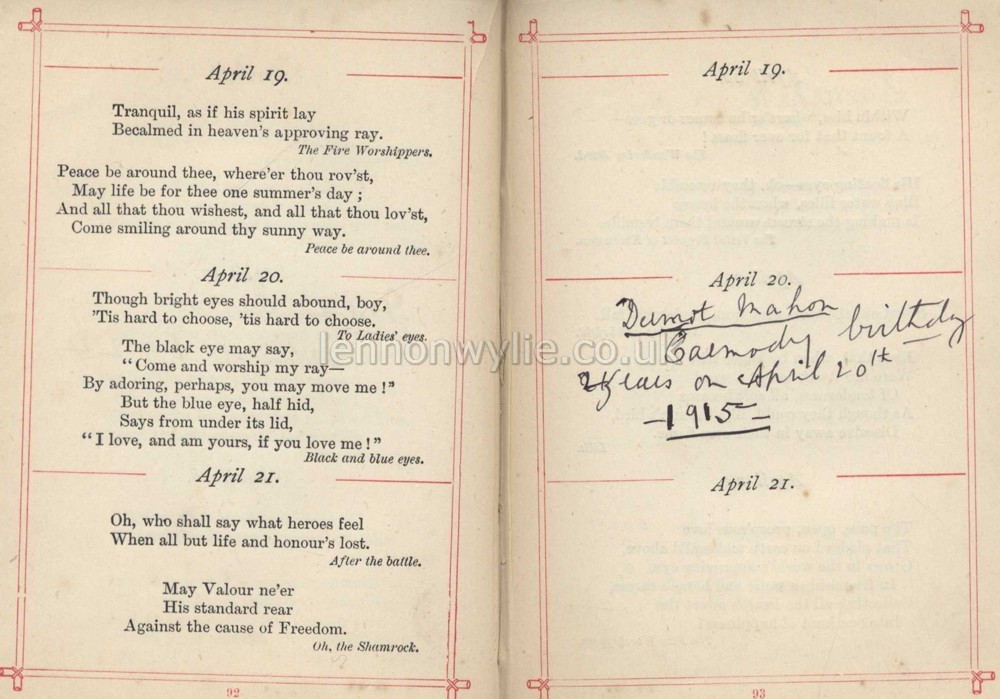 April 19.
Tranquil, as if his spirit lay
Becalmed in heaven's approving ray.
The Fire Worshippers.
Peace be around thee, where'er thou rov'st,
May life be for thee one summer's day ;
And all that thou wishest, and all that thou lov'st,
Come smiling around thy sunny way.
Peace be around thee.
April 20.
Though bright eyes should abound, boy,
'Tis hard to choose, 'tis hard to choose.
To Ladies' eyes.
The black eye may say,
"Come and worship my ray—
By adoring, perhaps, you may move me !"
But the blue eye, half hid,
Says from under its lid,
"I love, and am yours, if you love me !"
Black and blue eyes.
April 21.
Oh, who shall say what heroes feel
When all but life and honour's lost.
After the battle.
May Valour ne'er
His standard rear
Against the cause of Freedom.
Oh, the Shamrock.
92
April 19.
April 20.
Dermot Mahon
Carmody birthday
years on April 20th
1915
April 21.
93
lennonwylie.co.uk